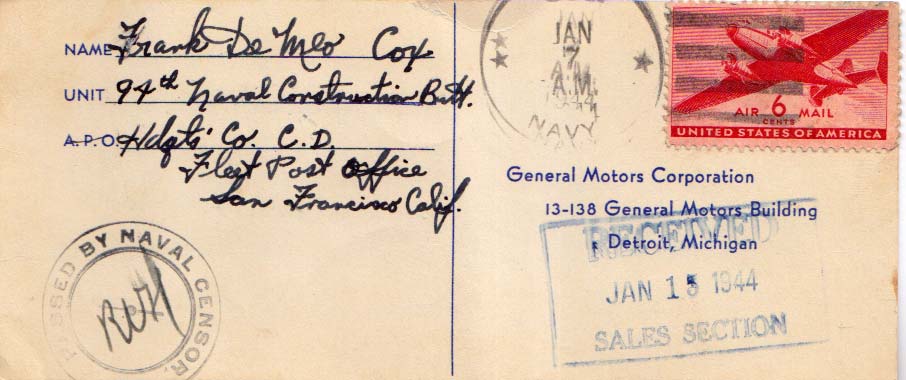 NAME Frank De Meo Cox
UNIT 94th Naval Construction Batt.
A.P.O. Hdqts' Co. C.D.
Fleet Post Office
San Francisco Calif.
PASSED BY NAVAL CENSOR
JAN
7
A.M.
1944
NAVY
AIR 6 MAIL
CENTS
UNITED STATES OF AMERICA
General Motors Corporation
13-138 General Motors Building
Detroit, Michigan
RECEIVED
JAN 13 1944
SALES SECTION